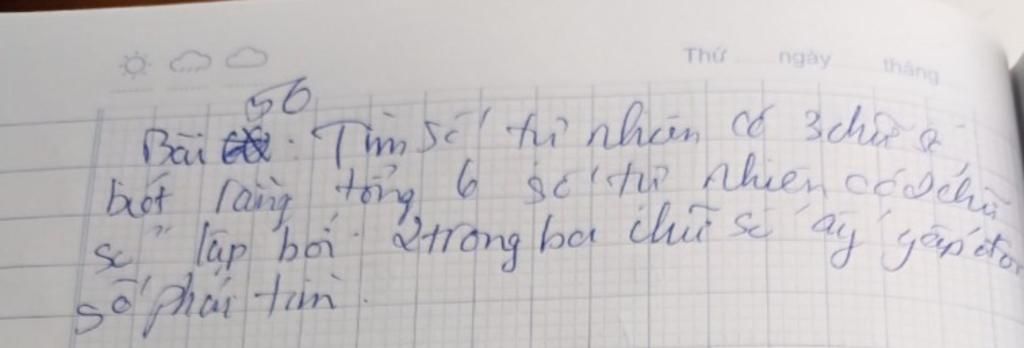 Thứ ngày tháng
56
Bài : Tìm số tự nhiên có 3 chữ số
biết rằng tổng 6 số tự nhiên có 2 chữ
số lập bởi 2 trong ba chữ số ấy gấp đôi
số phải tìm.